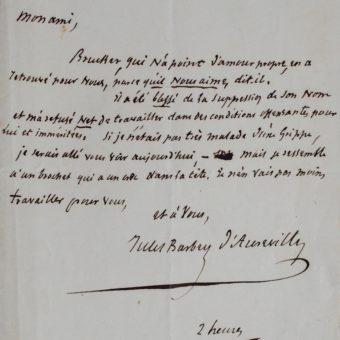 Mon ami,
Brucker qui N'a point d'amour propre, en a
retrouvé pour Nous, parce qu'il Nous aime, dit-il.
Il a été blessé de la suppression de son Nom
et m'a refusé Net de travailler dans des conditions offensantes, pour
lui et imméritées. Si je n'étais pas très malade d'une Grippe,
je serais allé vous voir aujourd'hui, — mais je ressemble
à un brochet qui a un croc dans la tête. Je n'en vais pas moins
travailler pour vous,
et à Vous,
Jules Barbey d'Aurevilly
2 heures